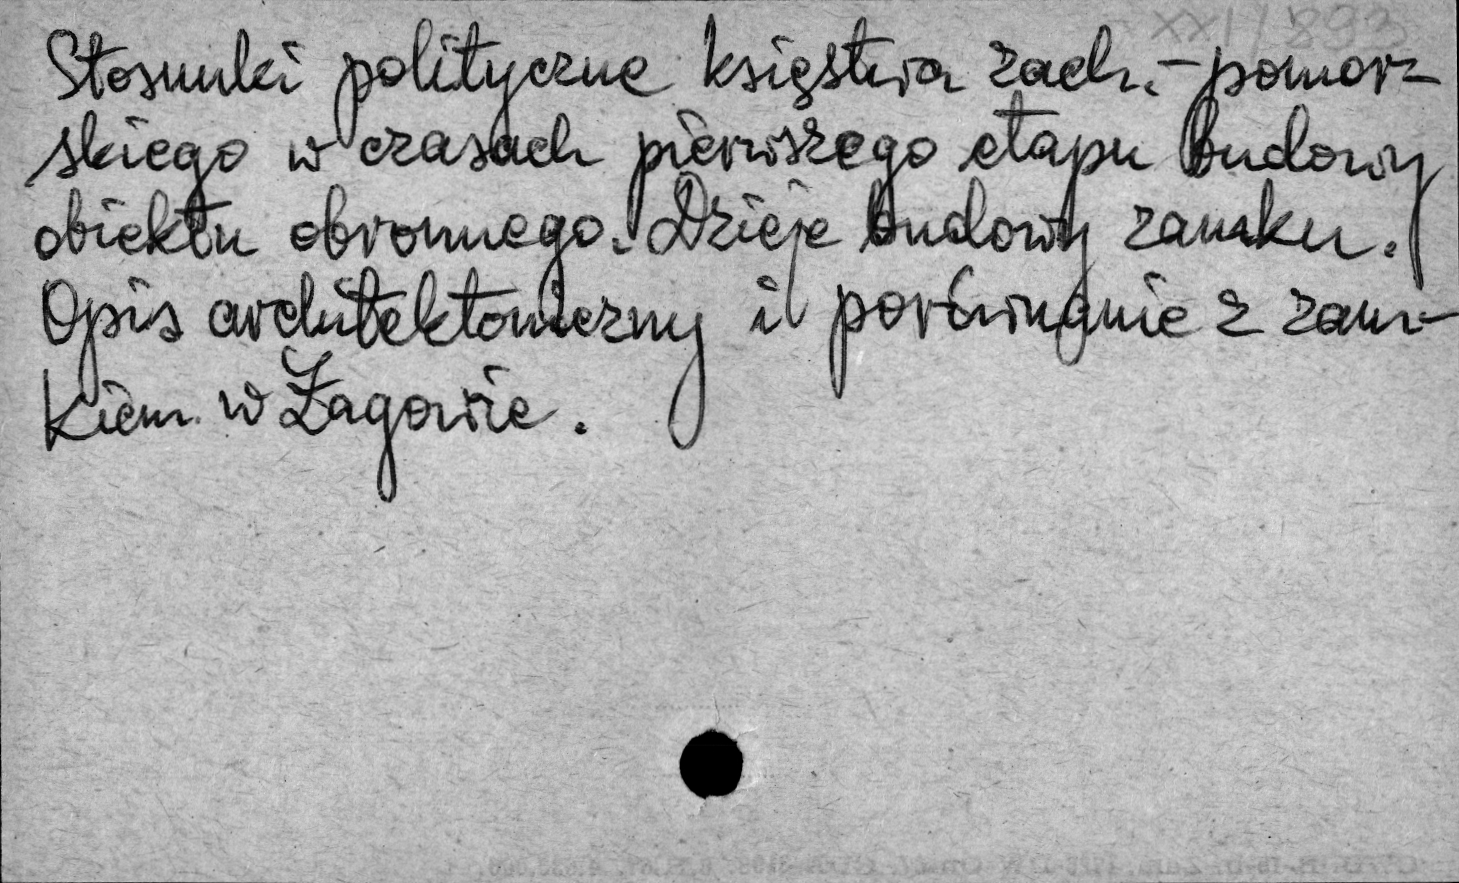 XXI/893
Stosunki polityczne księstwa zach.-pomor-
skiego w czasach pierwszego etapu budowy
obiektu obronnego. Dzieje budowy zamku.
Opis architektoniczny i porównanie z zam-
kiem w Żagowie.